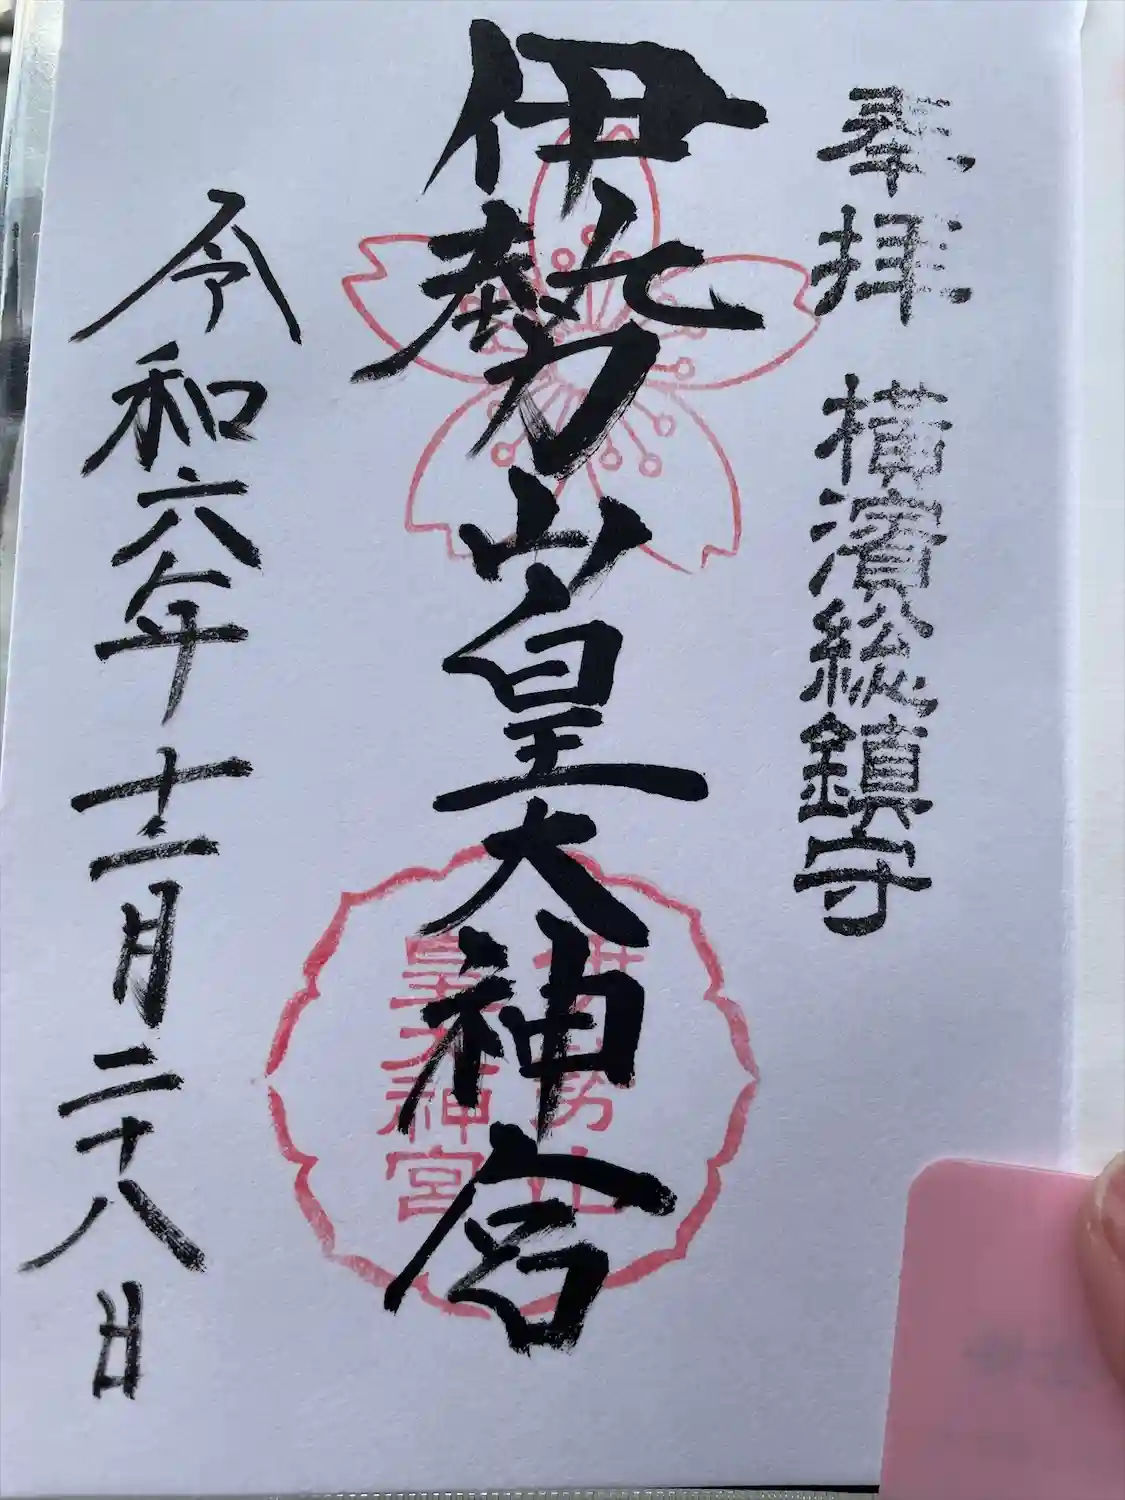 奉拝 横濱総鎮守
伊勢山皇大神宮
伊勢山
皇大神宮
令和六年十二月二十八日